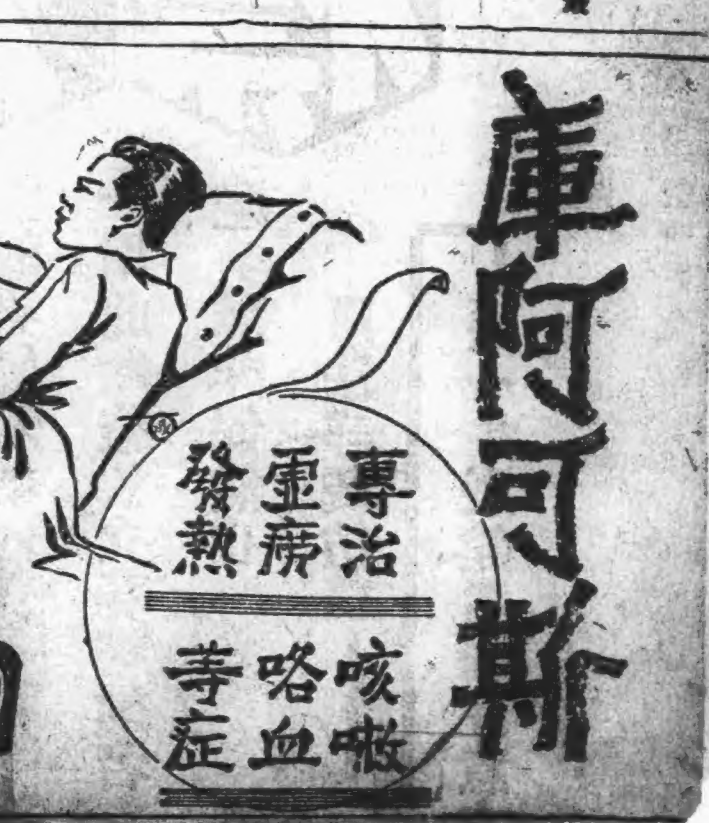 庫阿可斯
專治
虛癆
發熱
咳嗽
咯血
等症